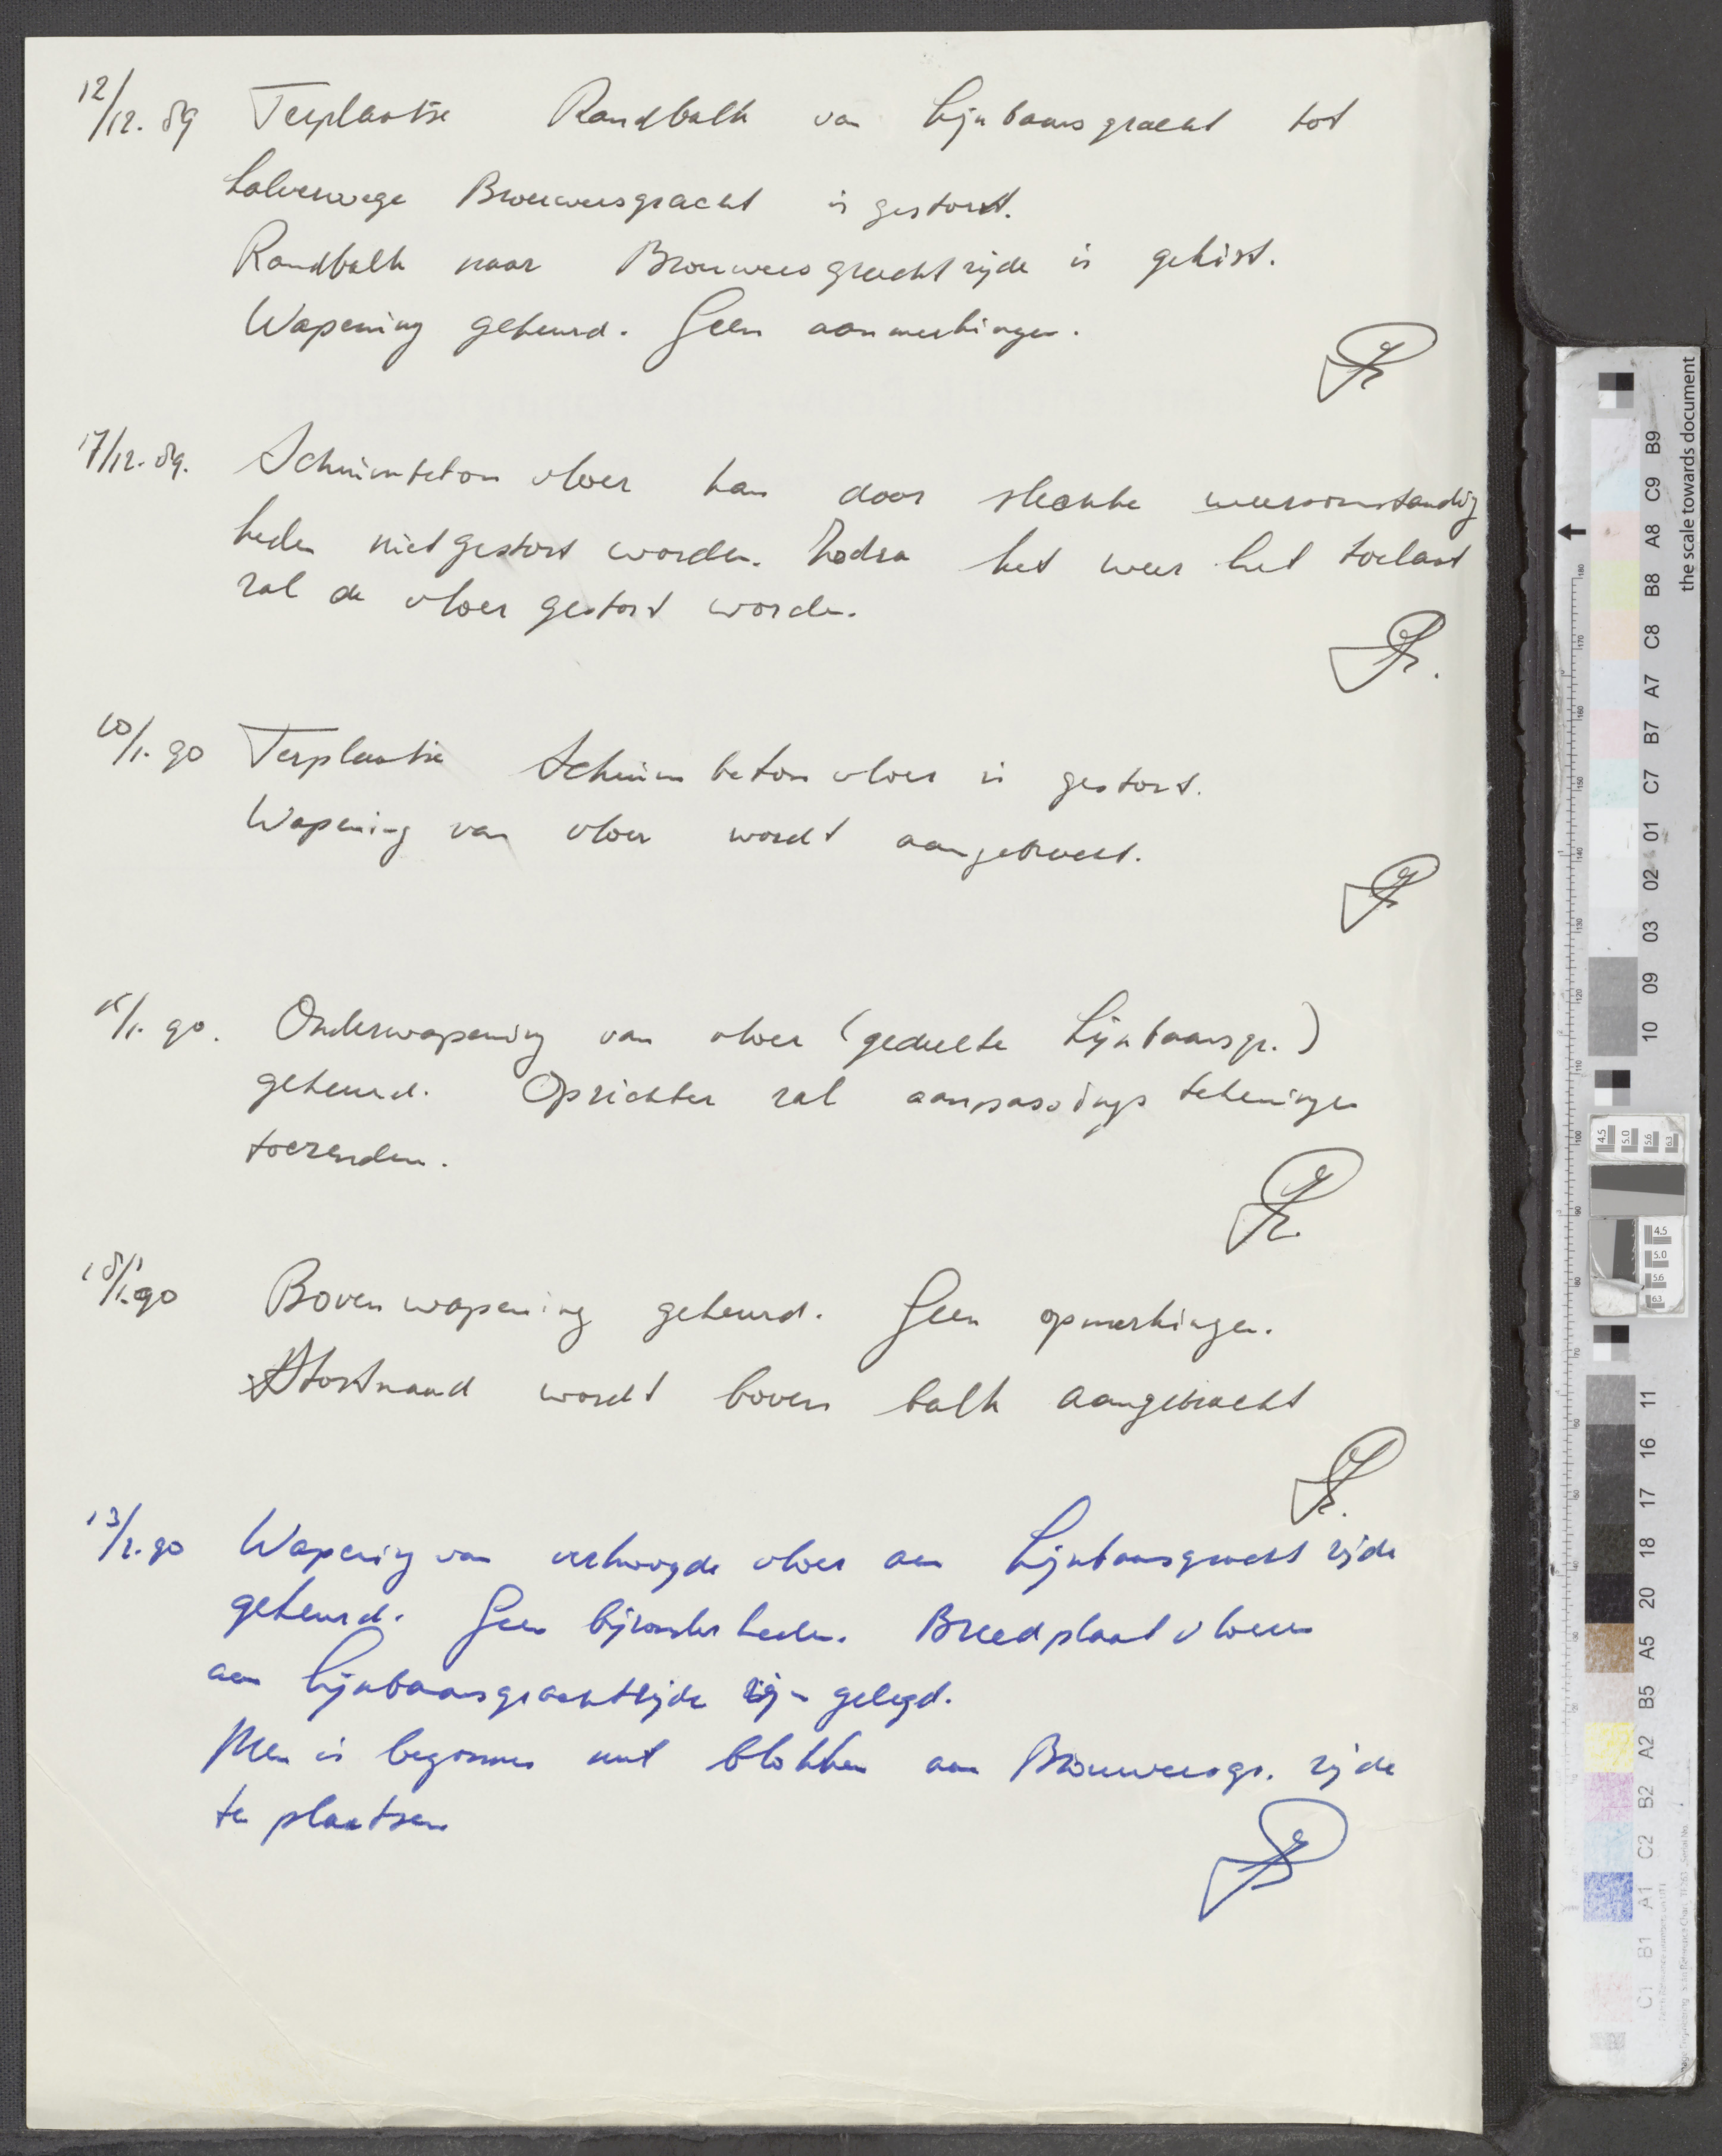 12/12.89 Terplaatse Randbalk van Lijnbaansgracht tot
halverwege Brouwersgracht is gestort.
Randbalk naar Brouwersgrachtzijde is gekist.
Wapening gekeurd. Geen aanmerkingen.
17/12.89. Schuimbeton vloer kan door slechte weersomstandig
heden niet gestort worden. Zodra het weer het toelaat
zal de vloer gestort worden.
10/1.90 Terplaatse Schuimbetonvloer is gestort.
Wapening van vloer wordt aangebracht.
15/1.90. Onderwapening van vloer (gedeelte Lijnbaansgr.)
gekeurd. Oprichter zal aanpassings tekeningen
toezenden.
18/1.90 Bovenwapening gekeurd. Geen opmerkingen.
Stortnaad wordt boven balk aangebracht
13/2.90 Wapening van verhoogde vloer aan Lijnbaansgracht zijde
gekeurd. Geen bijzonderheden. Breedplaatvloeren
aan Lijnbaansgrachtzijde zijn gelegd.
Men is begonnen met blokken aan Brouwersgr. zijde
te plaatsen
the scale towards document
B9 C9 A8 B8 C8 A7 B7 C7 01 02 03 09 10
11 16 17 18 20 A5 B5 A2 B2 C2 A1 B1 C1